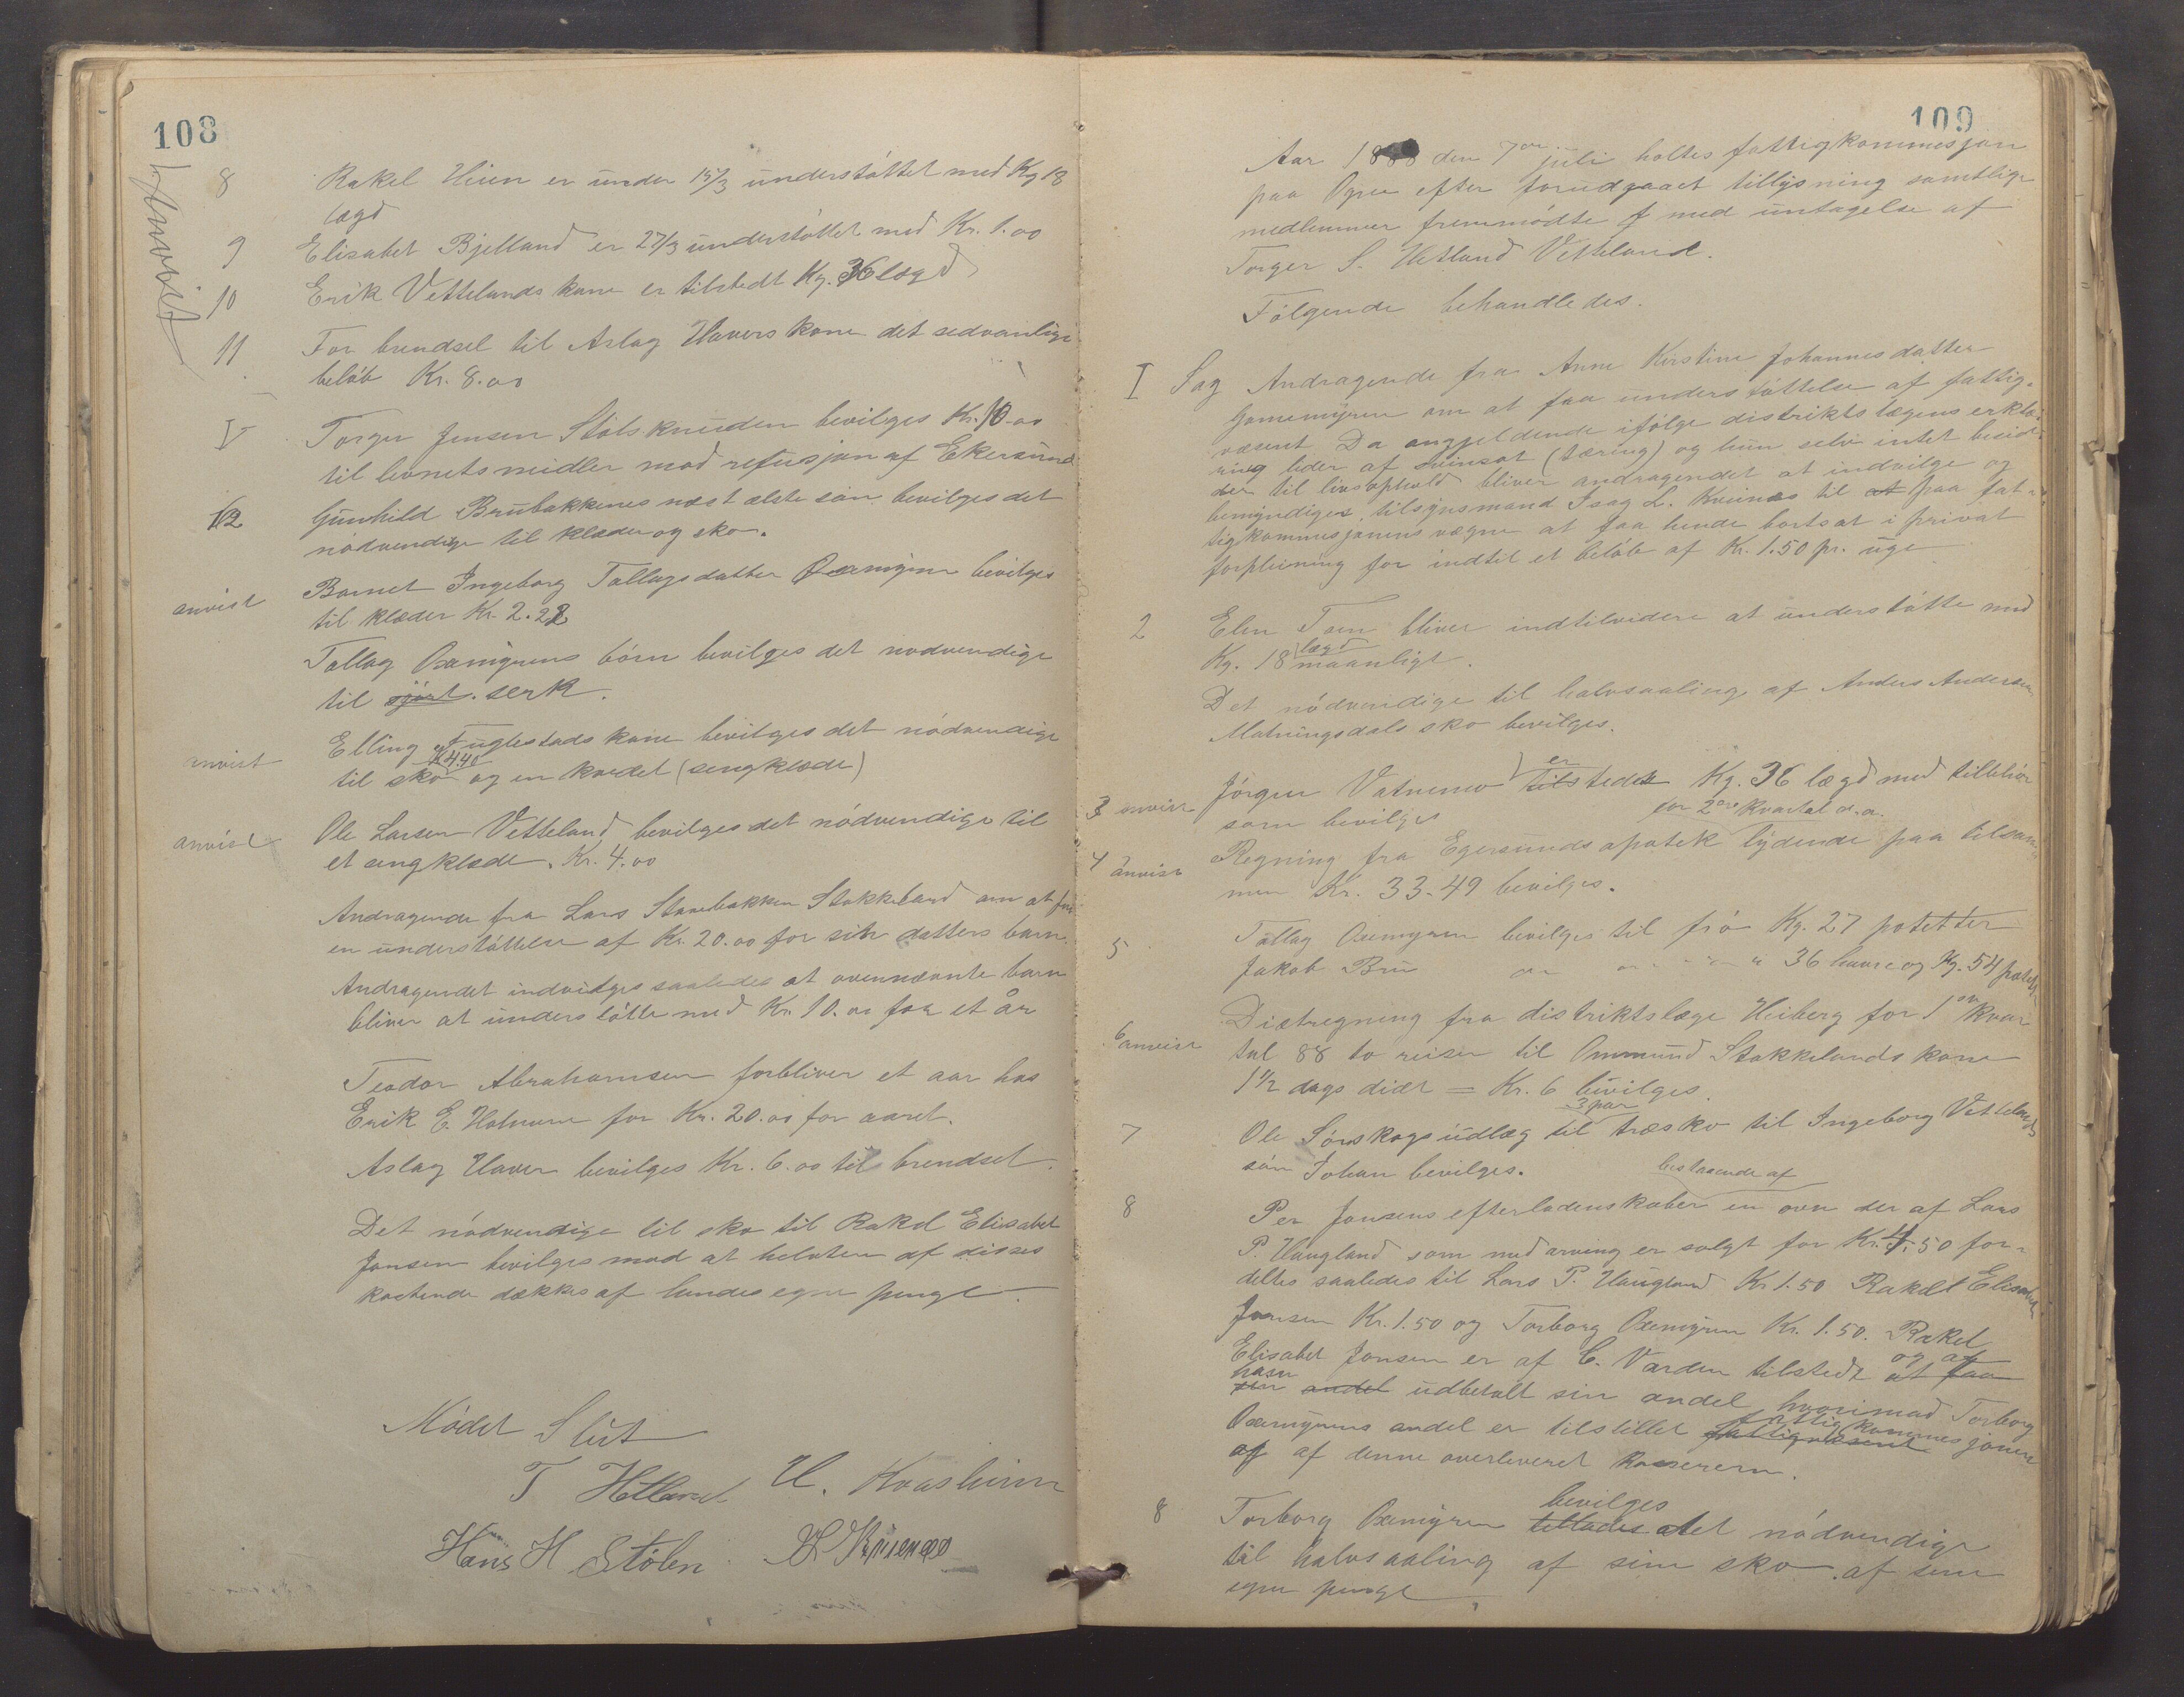 108
Anvist
8 Rakel Hien er under 15/3 understöttet med Kg 18
lægd
9 Elisabet Bjelland er 27/3 understöttet med Kr. 1.00
10 Erik Vettelands kone er tilstedt Kg. 36 lægd
11 For brendsel til Aslag Havers kone det sedvanlige
belöb Kr. 8.00
V Torger Jensen Stölsknuden bevilges Kr. 10.00
til levnetsmidler mod refusjon af Ekersund
12 Gunhild Brubakkenes næst ælste sön bevilges det
nödvendige til klæder og sko.
anvist Barnet Ingeborg Tallagsdatter Oxemyren bevilges
til klæder Kr. 2.22
Tallag Oxemyrens börn bevilges det nodvendige
til sjört. serk.
Elling Fuglestads kone bevilges det nödvendige
K 4.40
anvist til sko og en kvedel (sengklæde)
anvist Ole Larsen Vetteland bevilges det nödvendige til
et sengklæde. Kr. 4.00
Andragende fra Lars Stenebakken Stokkeland om at faa
en understöttelse af Kr. 20.00 for sin datters barn.
Andragendet indvilges saaledes at ovennævnte barn
bliver at understötte med Kr. 10.00 for et år
Teodor Abrahamsen forbliver et aar hos
Erik E. Holmane for Kr. 20.00 for aaret.
Aslag Haver bevilges Kr. 6.00 til brendsel.
Det nödvendige til sko til Rakel Elisabet
Jonsen bevilges mod at helvten af disses
kostende dækkes af hendes egne penge.
Mödet Slut
T Hetland H. Kvasheim
Hans H Stölen
109
Aar 1888 den 7de juli holtes fattigkommesjon
paa Ogne efter forudgaaet tillysning samtlige
medlemmer fremmödte med untagelse af
Torger S. Hetland Vetteland.
Fölgende behandledes.
I Sag Andragende fra Anne Kirstine Johannesdatter
om at faa understöttelse af fattig-
væsent. Da angjeldende ifölge distriktslægens erklæ-
ring lider af svinsot (tæring) og hun selv intet besid-
der til livsophold bliver andragendet at indvilge og
bemyndiges tilsynsmand Isag L. Kvinæs til at paa fat-
tigkommesjonens vægne at faa hende bortsat i privat
forpleining for indtil et belöb af Kr. 1.50 pr. uge
2 Elen Tøen bliver indtilvidere at understötte med
lægd
Kg. 18 maanligt.
Det nödvendige til halvsaaling af Anders Andersen
Matningsdals sko bevilges.
er
3 anvist Jörgen Vatnemo tilstedt Kg. 36 lægd med tilbehör
som bevilges
for 2det kvartal d.a.
4 anvist Regning fra Egersunds apotek lydende paa tilsam-
men Kr. 33.49 bevilges.
5 Tallag Oxemyren bevilges til frö Kg. 27 potetter
Jakob Bru " " " " 36 havre og Kg. 54 potet
6 anvist Diætregning fra distriktslæge Heiberg for 1ste kvar
tal 88 to reiser til Ommund Stokkelands kone
1 1/2 dags diæt = Kr. 6 bevilges.
3 par
7 Ole Sörskogs udlæg til træsko til Ingeborg Vettelands
sön Johan bevilges.
bestaaende af
8 Per Jonsens efterladenskaber en ovn der af Lars
P. Haugland som medarving er solgt for Kr. 4.50 for-
deltes saaledes til Lars P. Haugland Kr 1.50 Rakel Elisabet
Jonsen Kr. 1.50 og Torborg Oxemyren Kr. 1.50. Rakel
og af
Elisabet Jonsen er af C. Varden tilstedt at faa
ham
sin andel udbetalt sin andel hvorimod Torborg
fattigkommesjonen
Oxemyrens andel er tilstillet fattigvæsenet
og af denne overleveret kassereren.
bevilges
8 Torborg Oxemyren tillades det nödvendige
til halvsaaling af sine sko af sine
egne penge.